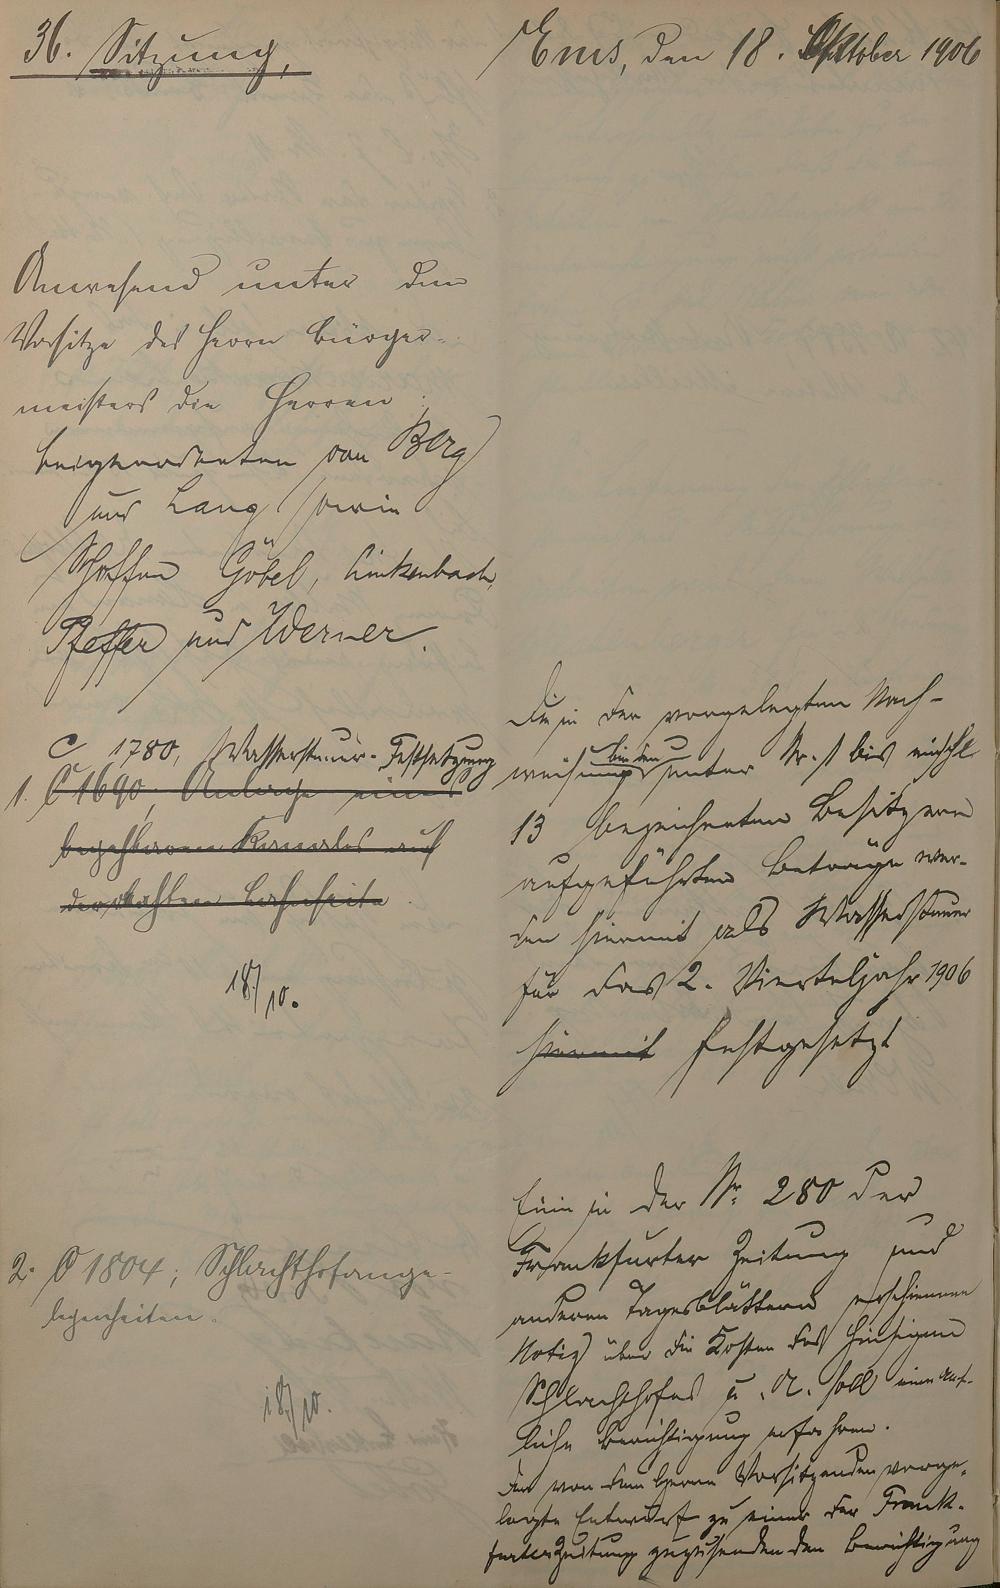 36. Sitzung,
Ems, den 18. Oktober 1906
Anwesend unter dem
Vorsitze des Herrn Bürger-
meisters die Herren:
Beigeordneten von Berg
und Lang sowie
Schöffen Göbel, Linkenbach,
Pfeffer und Werner.
C 1780, Wassersteuer-Festsetzung
1. C 1690, Anlage eines
begehbaren Kanales auf
der Lahnseite
18/10.
Die in der vorgelegten Nach-
weisung bei den unter Nr. 1 bis einschl.
13 bezeichneten Besitzern
aufgeführten Beträge wer-
den hiermit als Wassersteuer
für das 2. Vierteljahr 1906
hiermit festgesetzt
2. C 1804; Schlachthofange-
legenheiten.
18/10.
Eine in der Nr. 280 der
Frankfurter Zeitung und
anderen Tagesblättern erschienene
Notiz über die Kosten des hiesigen
Schlachthofes u. A. soll eine amt-
liche Berichtigung erfahren.
Der von dem Herrn Vorsitzenden vorge-
legte Entwurf zu einer der Frank-
furter Zeitung zuzusendenden Berichtigung